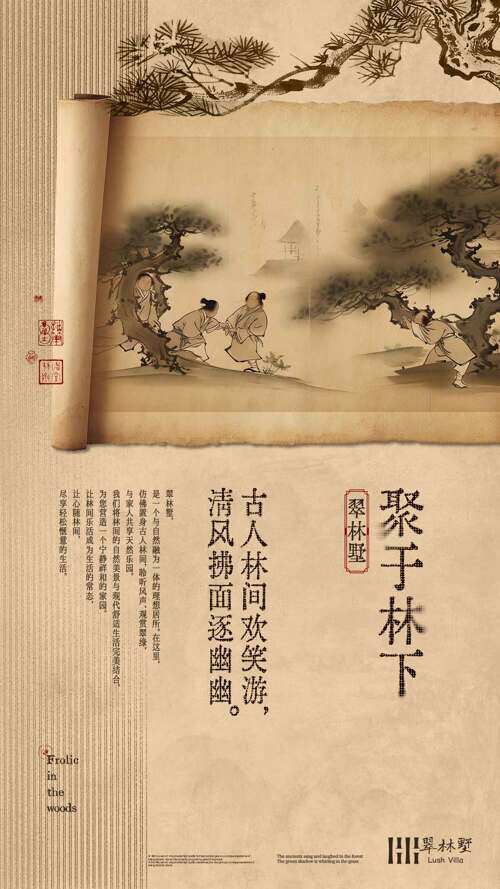 聚于林下
翠林墅
古人林间欢笑游，
清风拂面逐幽幽。
翠林墅，
是一个与自然融为一体的理想居所。在这里，
仿佛置身古人林间，聆听风声，观赏翠绿，
与家人共享天然乐园。
我们将林间的自然美景与现代舒适生活完美结合，
为您营造一个宁静祥和的家园。
让林间乐活成为生活的常态，
让心随林间，
尽享轻松惬意的生活。
Frolic
in
the
woods
The ancients sang and laughed in the forest
The green shadow is whirling in the grass
翠林墅
Lush Villa